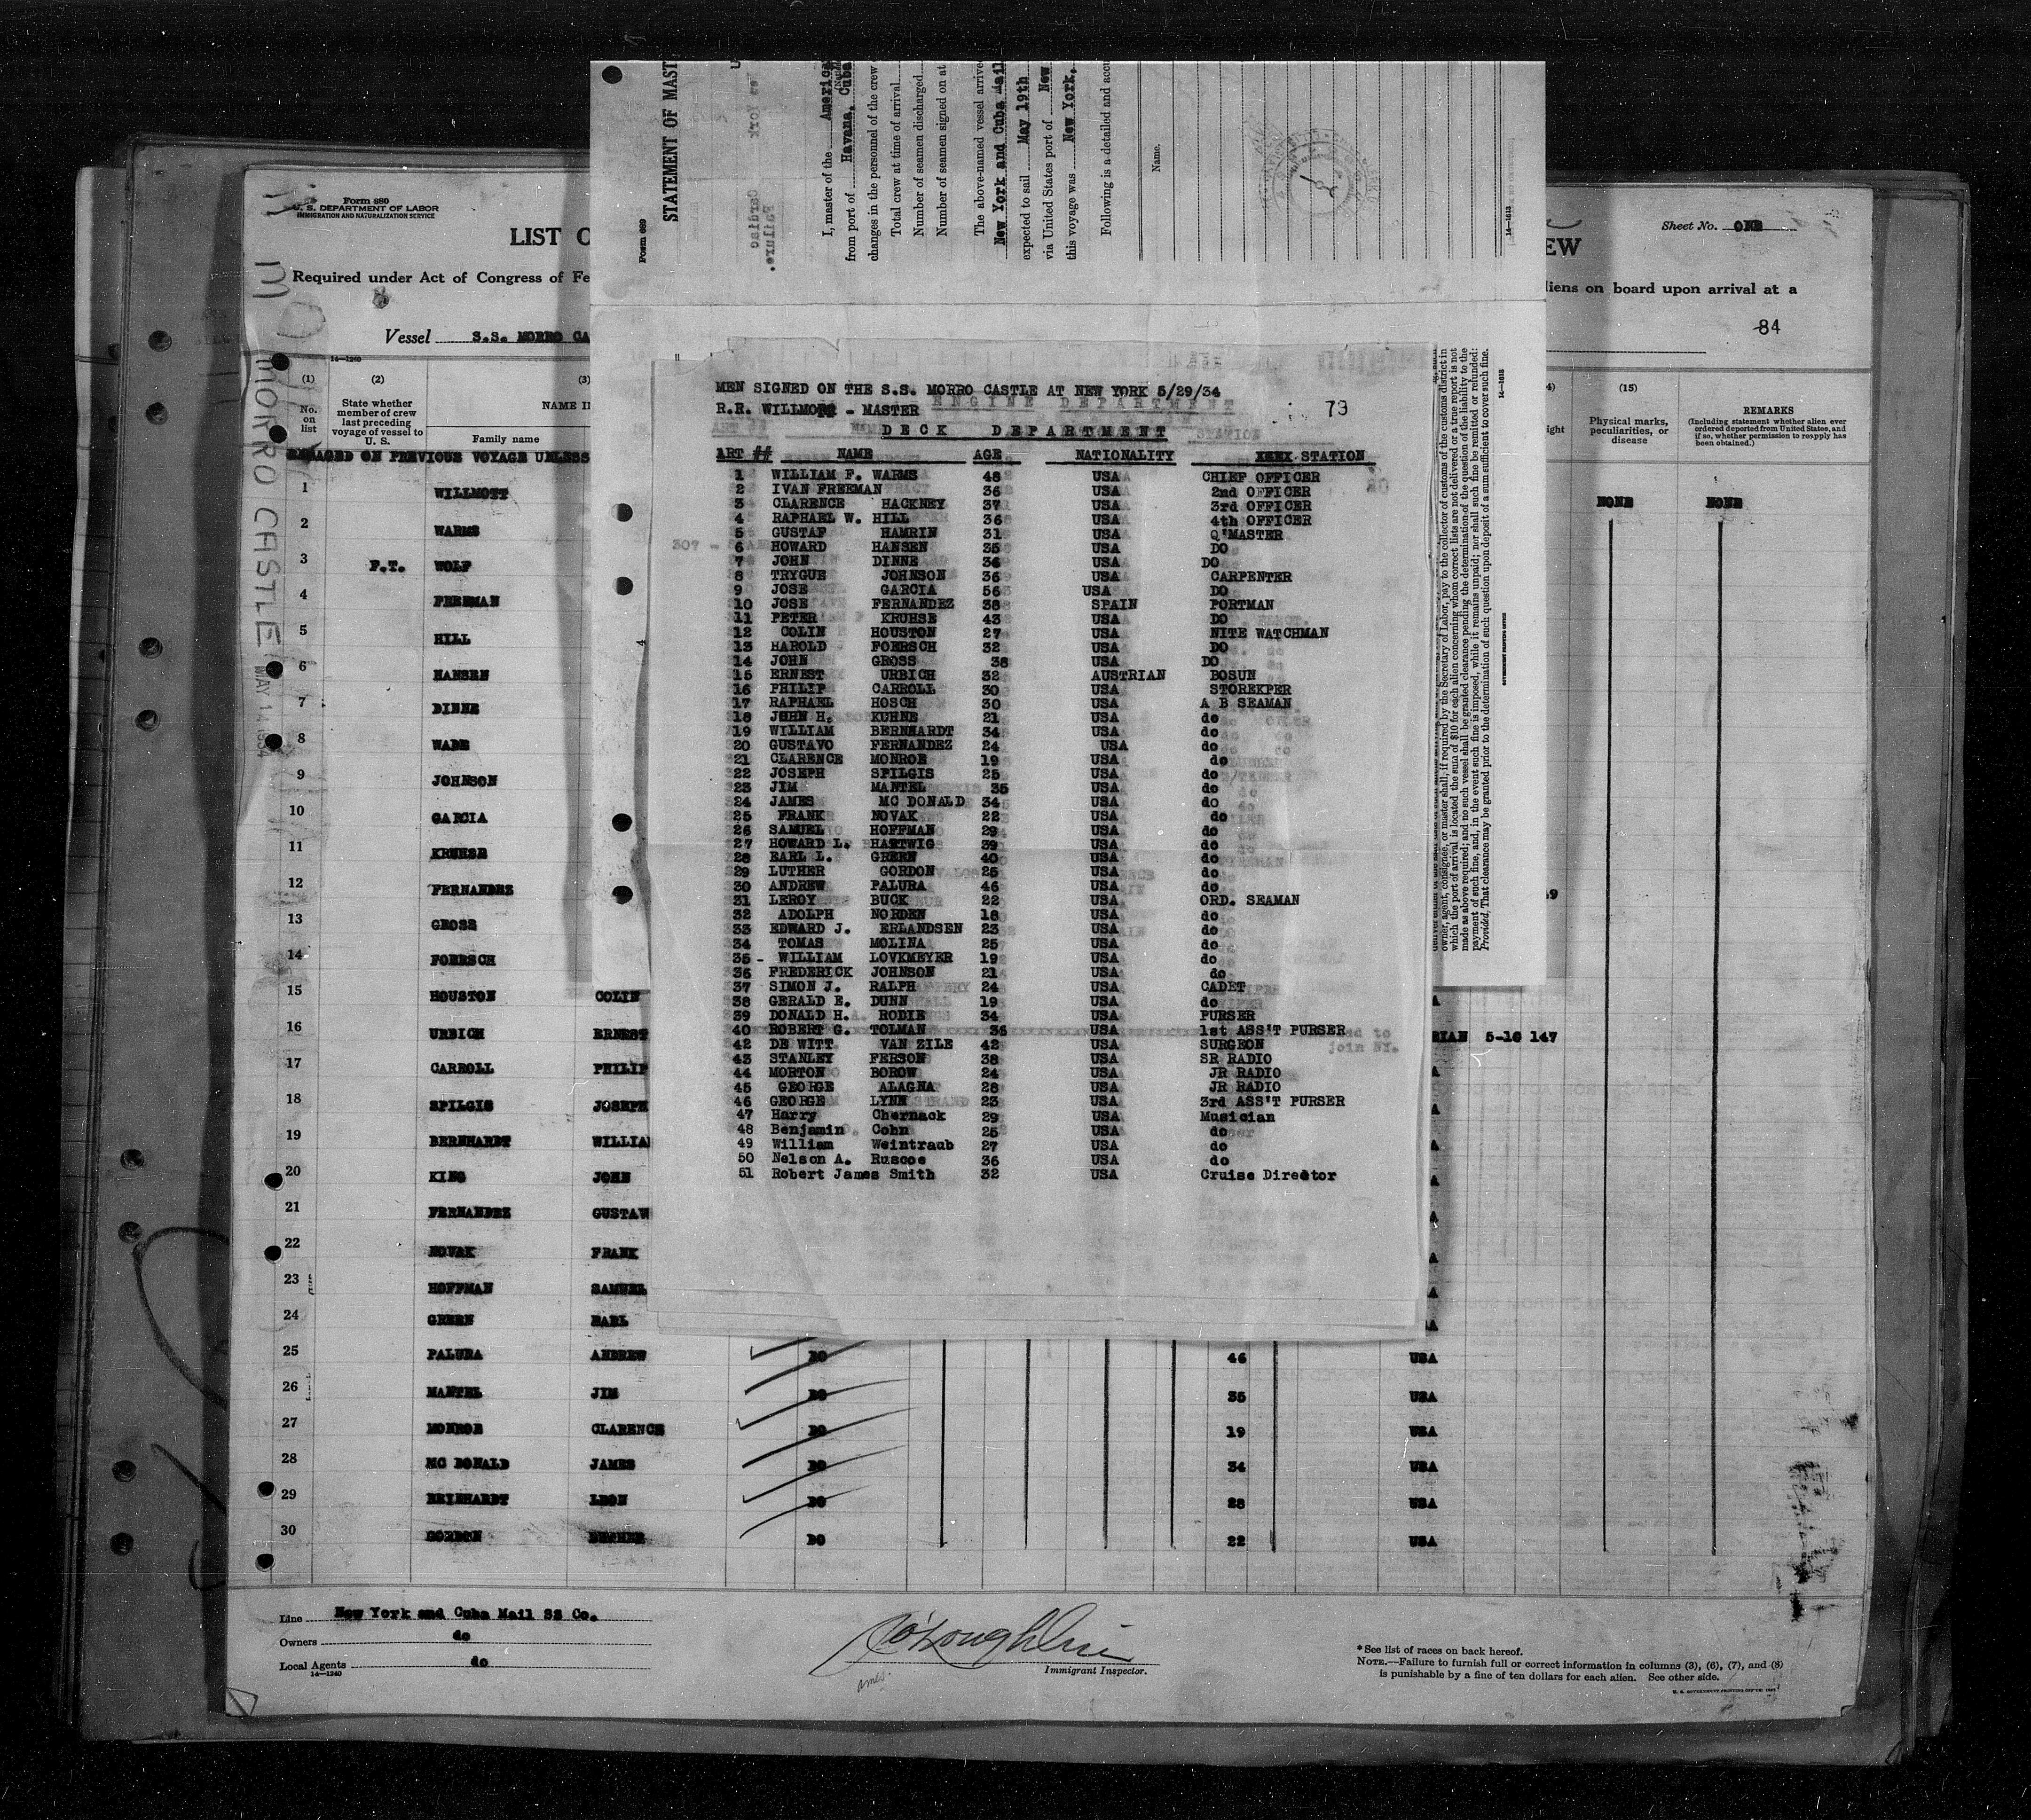 Form 680
U. S. DEPARTMENT OF LABOR
IMMIGRATION AND NATURALIZATION SERVICE
LIST O
Required under Act of Congress of Fe
Vessel S.S. MORRO CA
14—1240
(1)
(2)
(3)
No. on list
State whether member of crew last preceding voyage of vessel to U. S.
NAME I
Family name
ENGAGED ON PREVIOUS VOYAGE UNLESS
MORRO CASTLE
MAY 14 1934
1 WILLMOTT
2 WARMS
3 P.T. WOLF
4 FREEMAN
5 HILL
6 HANSEN
7 DINNE
8 WADE
9 JOHNSON
10 GARCIA
11 KRUHSE
12 FERNANDEZ
13 GROSS
14 FOERSCH
15 HOUSTON COLIN
16 URBICH ERNEST RIAN 5-10 147
17 CARROLL PHILIP
18 SPILGIS JOSEPH
19 BERNHARDT WILLIA
20 KING JOHN
21 FERNANDEZ GUSTAV
22 NOVAK FRANK
23 HOFFMAN SAMUEL
24 GREEN EARL
25 PALURA ANDREW DO 46 USA
26 MANTEL JIM DO 35 USA
27 MONROE CLARENCE DO 19 USA
28 MC DONALD JAMES DO 34 USA
29 REINHARDT LEON DO 28 USA
30 GORDON LUTHER DO 22 USA
Line New York and Cuba Mail SS Co.
Owners do
Local Agents do
14—1240
O'Loughlin
Immigrant Inspector.
*See list of races on back hereof.
NOTE.—Failure to furnish full or correct information in columns (3), (6), (7), and (8)
is punishable by a fine of ten dollars for each alien. See other side.
Form 689
STATEMENT OF MAST
I, master of the America
from port of Havana, Cuba
changes in the personnel of the crew
Total crew at time of arrival
Number of seamen discharged
Number of seamen signed on at
The above-named vessel arrive
New York and Cuba Mail
expected to sail May 19th
via United States port of New
this voyage was New York,
Following is a detailed and accu
Name.
14—1613
MEN SIGNED ON THE S.S. MORRO CASTLE AT NEW YORK 5/29/34
R.R. WILLMOTT - MASTER
79
DECK DEPARTMENT
ART ## NAME AGE NATIONALITY STATION
1 WILLIAM F. WARMS 48 USA CHIEF OFFICER
2 IVAN FREEMAN 36 USA 2nd OFFICER
3 CLARENCE HACKNEY 37 USA 3rd OFFICER
4 RAPHAEL W. HILL 36 USA 4th OFFICER
5 GUSTAF HAMRIN 31 USA Q'MASTER
6 HOWARD HANSEN 35 USA DO
7 JOHN DINNE 36 USA DO
8 TRYGUE JOHNSON 36 USA CARPENTER
9 JOSE GARCIA 56 USA DO
10 JOSE FERNANDEZ 38 SPAIN PORTMAN
11 PETER KRUHSE 43 USA DO
12 COLIN HOUSTON 27 USA NITE WATCHMAN
13 HAROLD FOERSCH 32 USA DO
14 JOHN GROSS 38 USA DO
15 ERNEST URBICH 32 AUSTRIAN BOSUN
16 PHILIP CARROLL 30 USA STOREKPER
17 RAPHAEL HOSCH 30 USA A B SEAMAN
18 JOHN H. KUHNE 21 USA do
19 WILLIAM BERNHARDT 34 USA do
20 GUSTAVO FERNANDEZ 24 USA do
21 CLARENCE MONROE 19 USA do
22 JOSEPH SPILGIS 25 USA do
23 JIM MANTEL 35 USA do
24 JAMES MC DONALD 34 USA do
25 FRANK NOVAK 22 USA do
26 SAMUEL HOFFMAN 29 USA do
27 HOWARD L. HARTWIG 39 USA do
28 EARL L. GREEN 40 USA do
29 LUTHER GORDON 25 USA do
30 ANDREW PALURA 46 USA do
31 LEROY BUCK 22 USA ORD. SEAMAN
32 ADOLPH NORDEN 18 USA do
33 EDWARD J. ERLANDSEN 23 USA do
34 TOMAS MOLINA 25 USA do
35 - WILLIAM LOVKMEYER 19 USA do
36 FREDERICK JOHNSON 21 USA do
37 SIMON J. RALPH 24 USA CADET
38 GERALD E. DUNN 19 USA do
39 DONALD H. RODIE 34 USA PURSER
40 ROBERT G. TOLMAN 36 USA 1st ASS'T PURSER
42 DE WITT VAN ZILE 42 USA SURGEON
43 STANLEY FERSON 38 USA SR RADIO
44 MORTON BOROW 24 USA JR RADIO
45 GEORGE ALAGNA 28 USA JR RADIO
46 GEORGE LYNN 23 USA 3rd ASS'T PURSER
47 Harry Chernack 29 USA Musician
48 Benjamin Cohn 25 USA do
49 William Weintraub 27 USA do
50 Nelson A. Ruscoe 36 USA do
51 Robert James Smith 32 USA Cruise Director
owner, agent, consignee, or master shall, if required by the Secretary of Labor, pay to the collector of customs of the customs district in
which the port of arrival is located the sum of $10 for each alien concerning whom correct lists are not delivered or a true report is not
made as above required; and no such vessel shall be granted clearance pending the determination of the question of the liability to the
payment of such fine, and, in the event such fine is imposed, while it remains unpaid; nor shall such fine be remitted or refunded:
Provided, That clearance may be granted prior to the determination of such question upon deposit of a sum sufficient to cover such fine.
14—1613
EW
Sheet No. ONE
liens on board upon arrival at a
84
(15)
Physical marks, peculiarities, or disease
REMARKS
(Including statement whether alien ever ordered deported from United States, and if so, whether permission to reapply has been obtained.)
NONE NONE